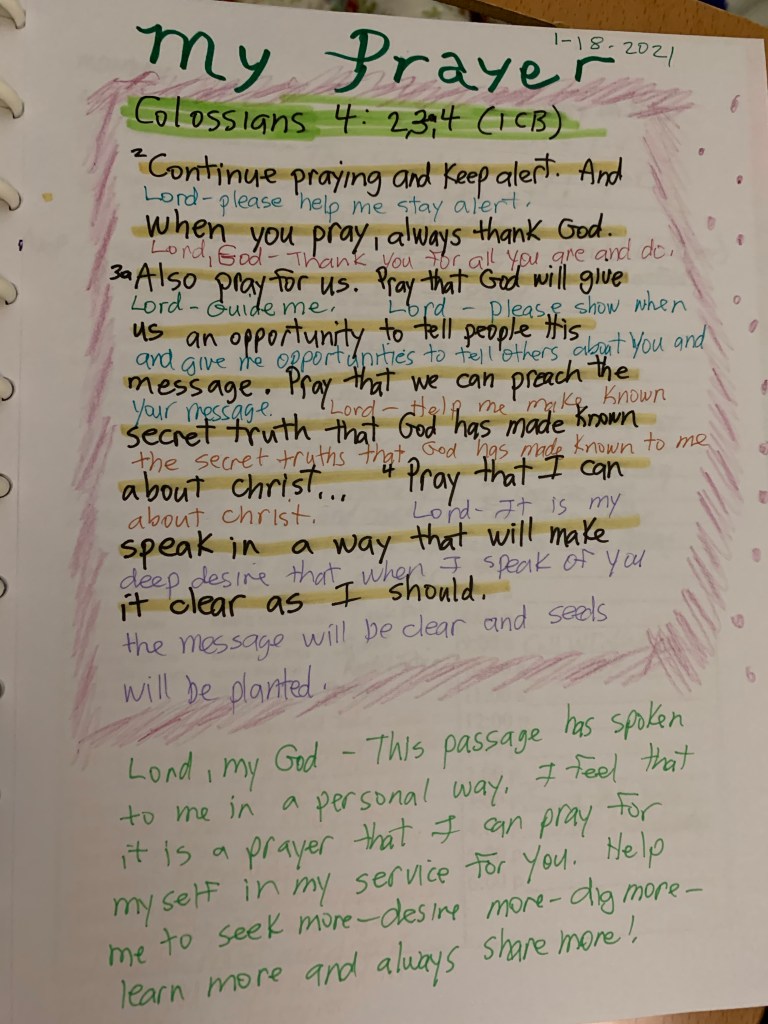 My Prayer
1-18-2021
Colossians 4: 2,3;4 (ICB)
2 Continue praying and Keep alert. And
Lord - please help me stay alert.
when you pray, always thank God.
Lord, God - Thank you for all you are and do.
3a Also pray for us. Pray that God will give
Lord - Guide me. Lord - please show when
us an opportunity to tell people His
and give me opportunities to tell others about You and
message. Pray that we can preach the
your message. Lord - Help me make known
secret truth that God has made known
the secret truths that God has made known to me
about christ... 4 Pray that I can
about christ. Lord - It is my
speak in a way that will make
deep desire that when I speak of you
it clear as I should.
the message will be clear and seeds
will be planted.
Lord, my God - This passage has spoken
to me in a personal way. I feel that
it is a prayer that I can pray for
myself in my service for you. Help
me to seek more - desire more - dig more -
learn more and always share more!